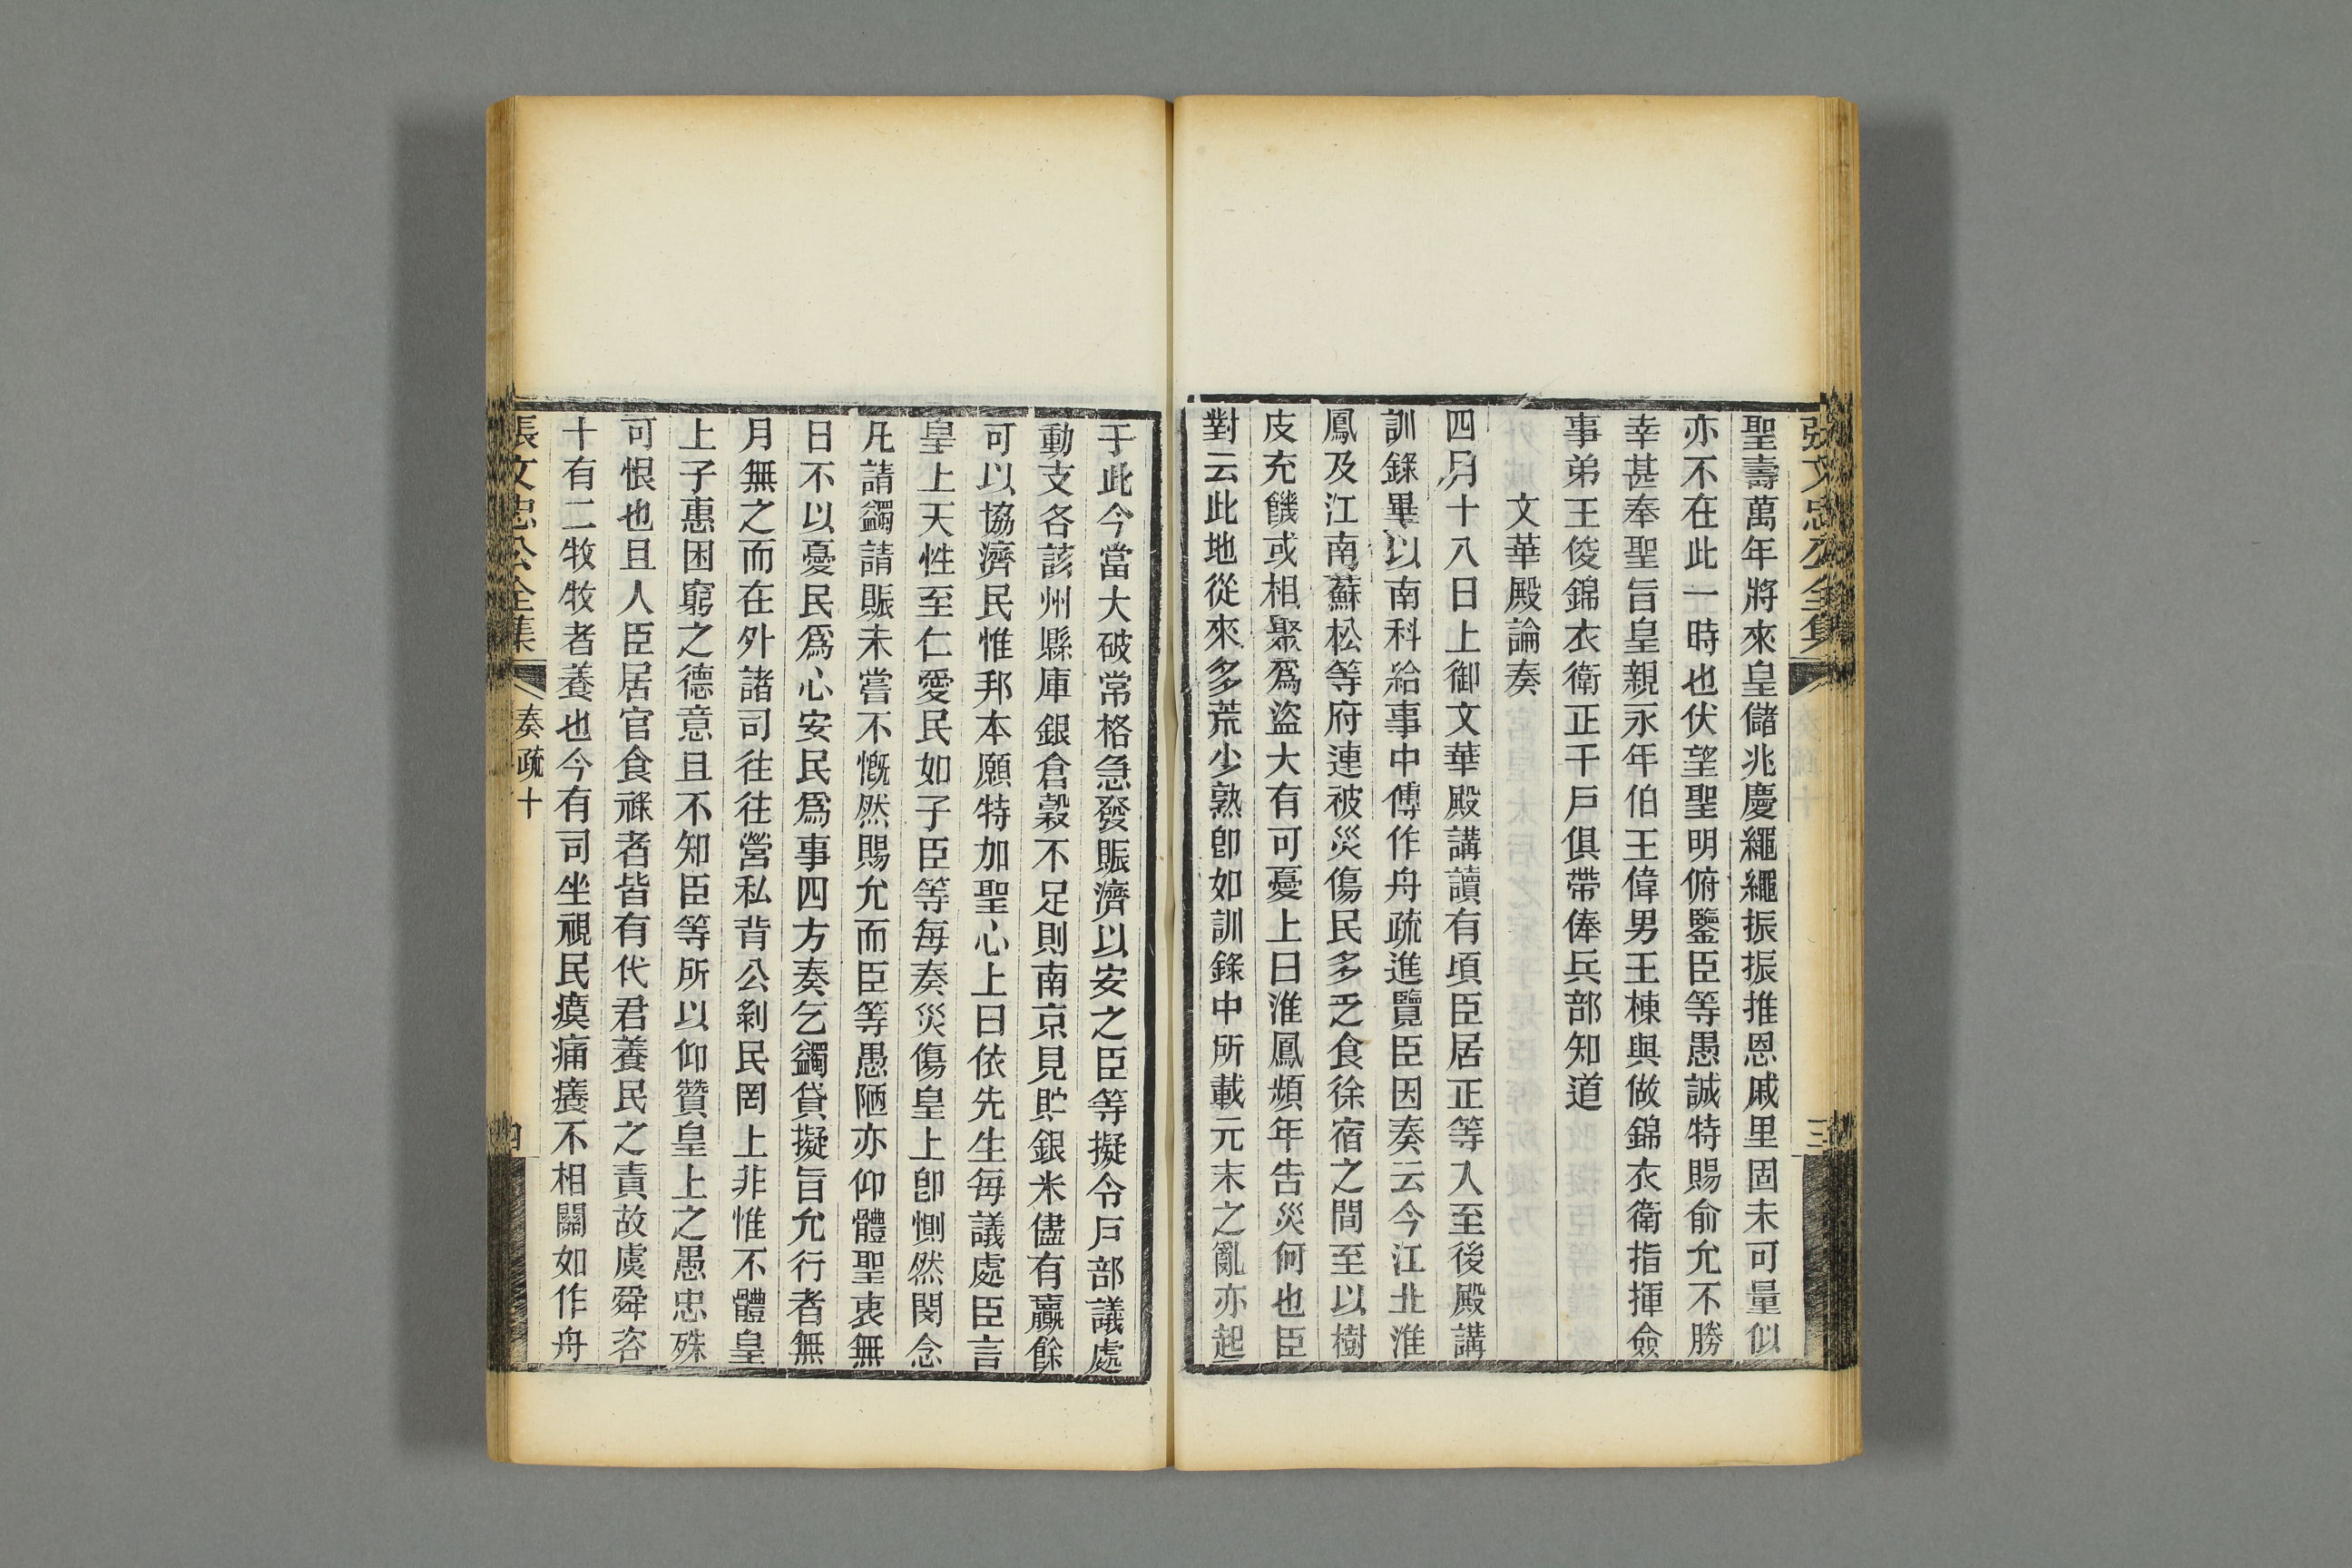 張文忠公全集
三
聖壽萬年將來皇儲兆慶繩繩振振推恩戚里固未可量似
亦不在此一時也伏望聖明俯鑒臣等愚誠特賜俞允不勝
幸甚奉聖旨皇親永年伯王偉男王棟與做錦衣衛指揮僉
事弟王俊錦衣衛正千戶俱帶俸兵部知道
文華殿論奏
四月十八日上御文華殿講讀有頃臣居正等入至後殿講
訓錄畢以南科給事中傅作舟疏進覽臣因奏云今江北淮
鳳及江南蘇松等府連被災傷民多乏食徐宿之間至以樹
皮充饑或相聚爲盜大有可憂上曰淮鳳頻年告災何也臣
對云此地從來多荒少熟卽如訓錄中所載元末之亂亦起
于此今當大破常格急發賑濟以安之臣等擬令戶部議處
動支各該州縣庫銀倉穀不足則南京見貯銀米儘有贏餘
可以協濟民惟邦本願特加聖心上曰依先生每議處臣言
皇上天性至仁愛民如子臣等每奏災傷皇上卽惻然閔念
凡請蠲請賑未嘗不慨然賜允而臣等愚陋亦仰體聖衷無
日不以憂民爲心安民爲事四方奏乞蠲貸擬旨允行者無
月無之而在外諸司往往營私背公剝民罔上非惟不體皇
上子惠困窮之德意且不知臣等所以仰贊皇上之愚忠殊
可恨也且人臣居官食祿者皆有代君養民之責故虞舜咨
十有二牧牧者養也今有司坐視民瘼痛癢不相關如作舟
張文忠公全集
奏疏十
四